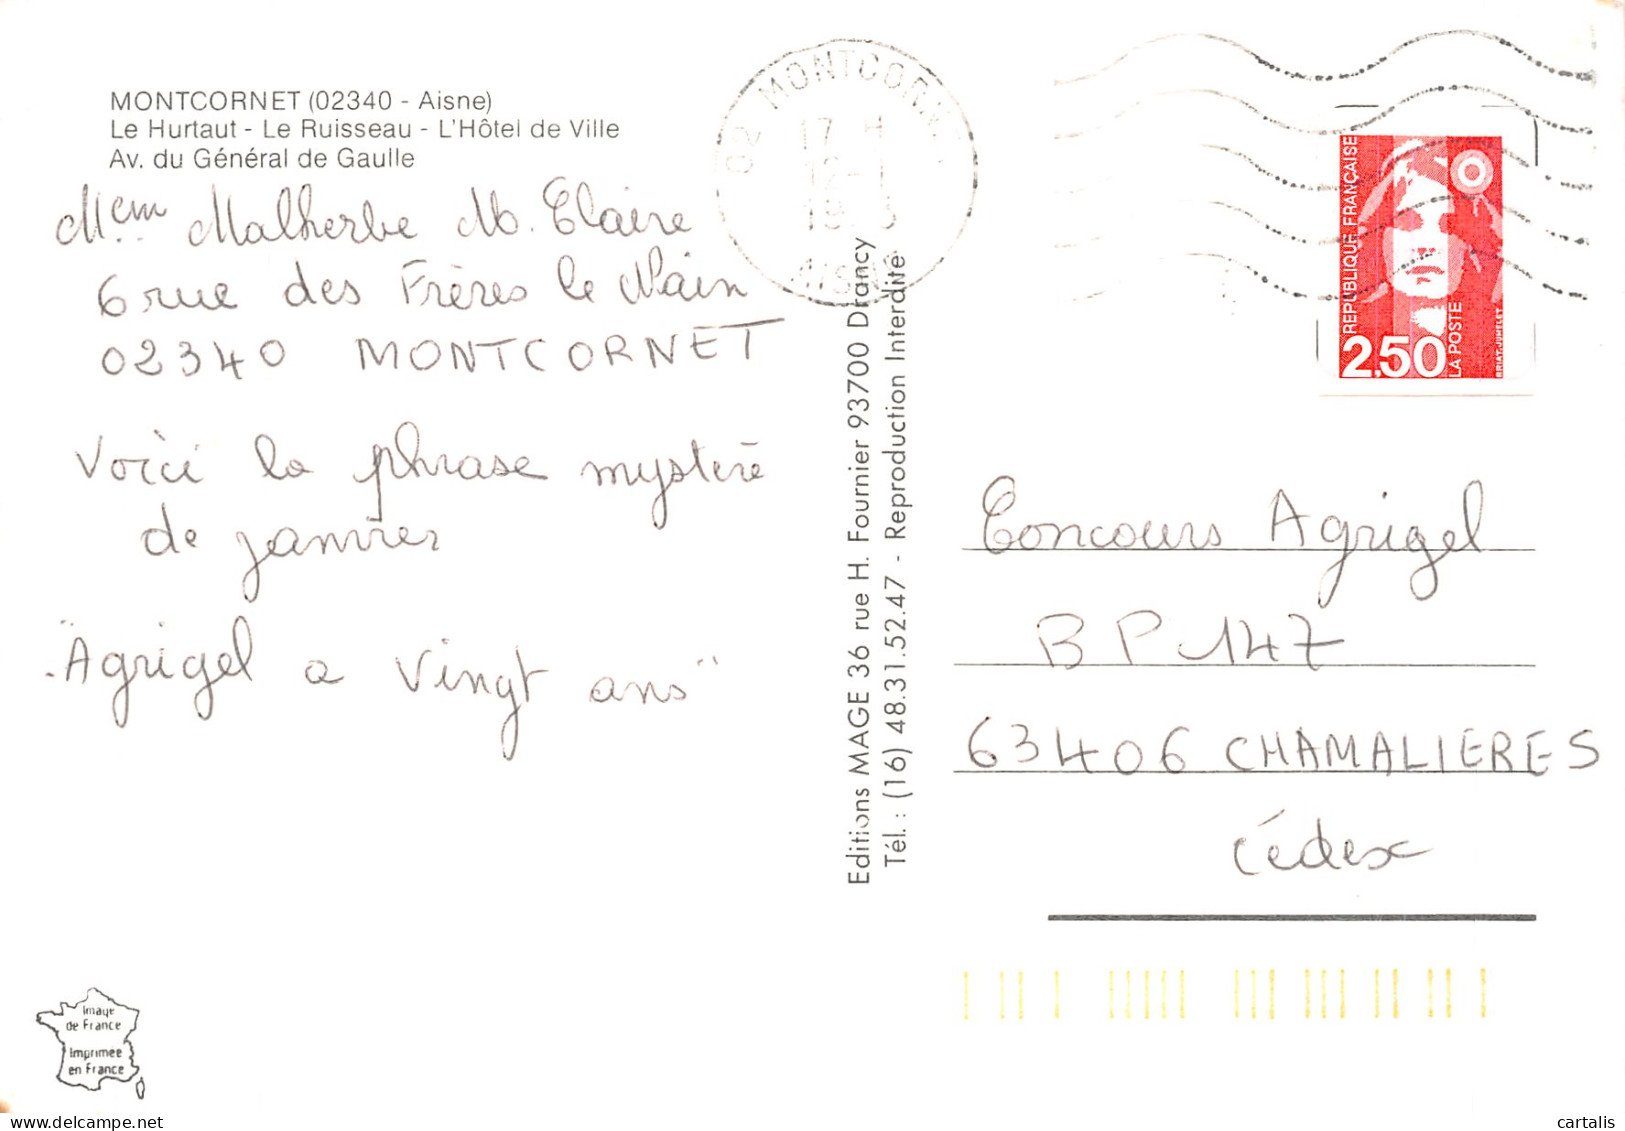 MONTCORNET (02340 - Aisne)
Le Hurtaut - Le Ruisseau - L'Hôtel de Ville
Av. du Général de Gaulle
Mem Malherbe M. Claire
6 rue des Frères le Nain
02340 MONTCORNET
Voici la phrase mystère
de janvier
"Agrigel a vingt ans"
Image
de France
Imprimée
en France
Editions MAGE 36 rue H. Fournier 93700 Drancy
Tél. : (16) 48.31.52.47 - Reproduction Interdite
02 MONTCORN
17 H
12-1
19
AISNE
REPUBLIQUE FRANÇAISE
2,50
LA POSTE
BRIAT-JUMELET
Concours Agrigel
BP 147
63406 CHAMALIERES
Cédex
cartalis